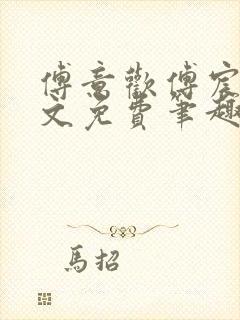 傅意歡傅宸
文免費筆趣
馬招